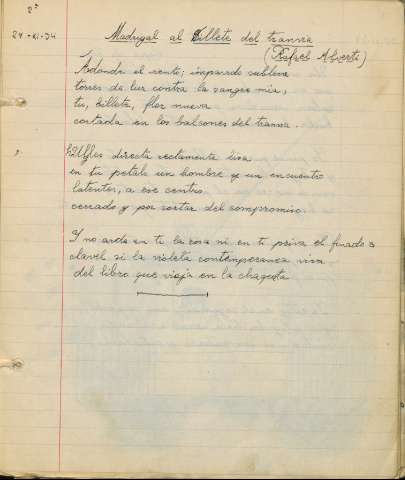 2º
24-XI-74
Madrigal al Billete del tranvia
(Rafael Alberti)
Adonde el viento, impavido subleva
torres de luz contra la sangre mia,
tu, billete, flor nueva
cortada en los balcones del tranvia.
directa rectamente lisa
en tu petalo un nombre y un encuentro
latentes, a ese centro
cerrado y por cortar del compromiso.
Y no arde en ti la rosa ni en ti priva el finado
clavel si la violeta contemporanea viva
del libro que viaja en la chaqueta